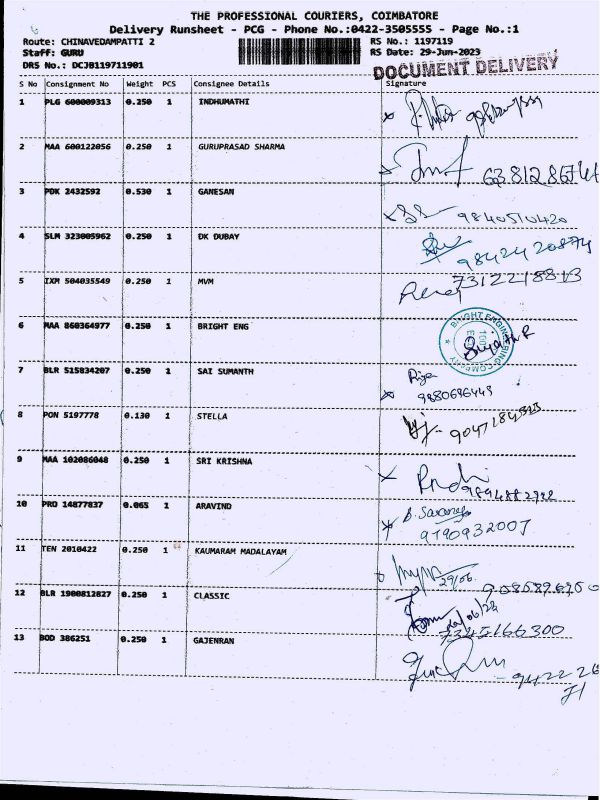 THE PROFESSIONAL COURIERS, COIMBATORE
Delivery Runsheet - PCG - Phone No.:0422-3505555 - Page No.:1
Route: CHINAVEDAMPATTI 2 RS No.: 1197119
Staff: GURU RS Date: 29-Jun-2023
DRS No.: DCJB119711901 DOCUMENT DELIVERY
S No Consignment No Weight PCS Consignee Details Signature
1 PLG 600009313 0.250 1 INDHUMATHI
2 MAA 600122056 0.250 1 GURUPRASAD SHARMA
3 PDK 2432592 0.530 1 GANESAN
9840510420
4 SLM 323005962 0.250 1 DK DUBAY
9842420874
5 IXM 504035549 0.250 1 MVM
7312218813
6 MAA 860364977 0.250 1 BRIGHT ENG
BRIGHT ENGINEERING COMPANY
7 BLR 515834207 0.250 1 SAI SUMANTH
Riya
9880686443
8 PON 5197778 0.130 1 STELLA
9 MAA 102086048 0.250 1 SRI KRISHNA
9894882792
10 PRO 14877837 0.065 1 ARAVIND
9790932007
11 TEN 2010422 0.250 1 KAUMARAM MADALAYAM
29/06.
12 BLR 1900812827 0.250 1 CLASSIC
7345166300
13 BOD 386251 0.250 1 GAJENRAN